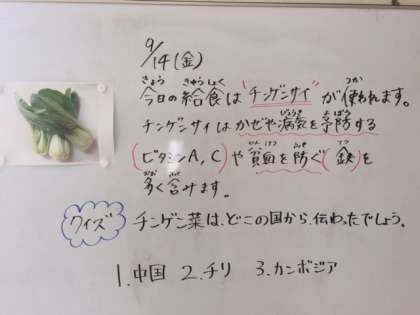 9/14(金)
今日の給食は"チンゲンサイ"が使われます。
チンゲンサイはかぜや病気を予防する
(ビタミンA,C)や貧血を防ぐ(鉄)を
多く含みます。
クイズ チンゲン菜は、どこの国から、伝わったでしょう。
1.中国 2.チリ 3.カンボジア